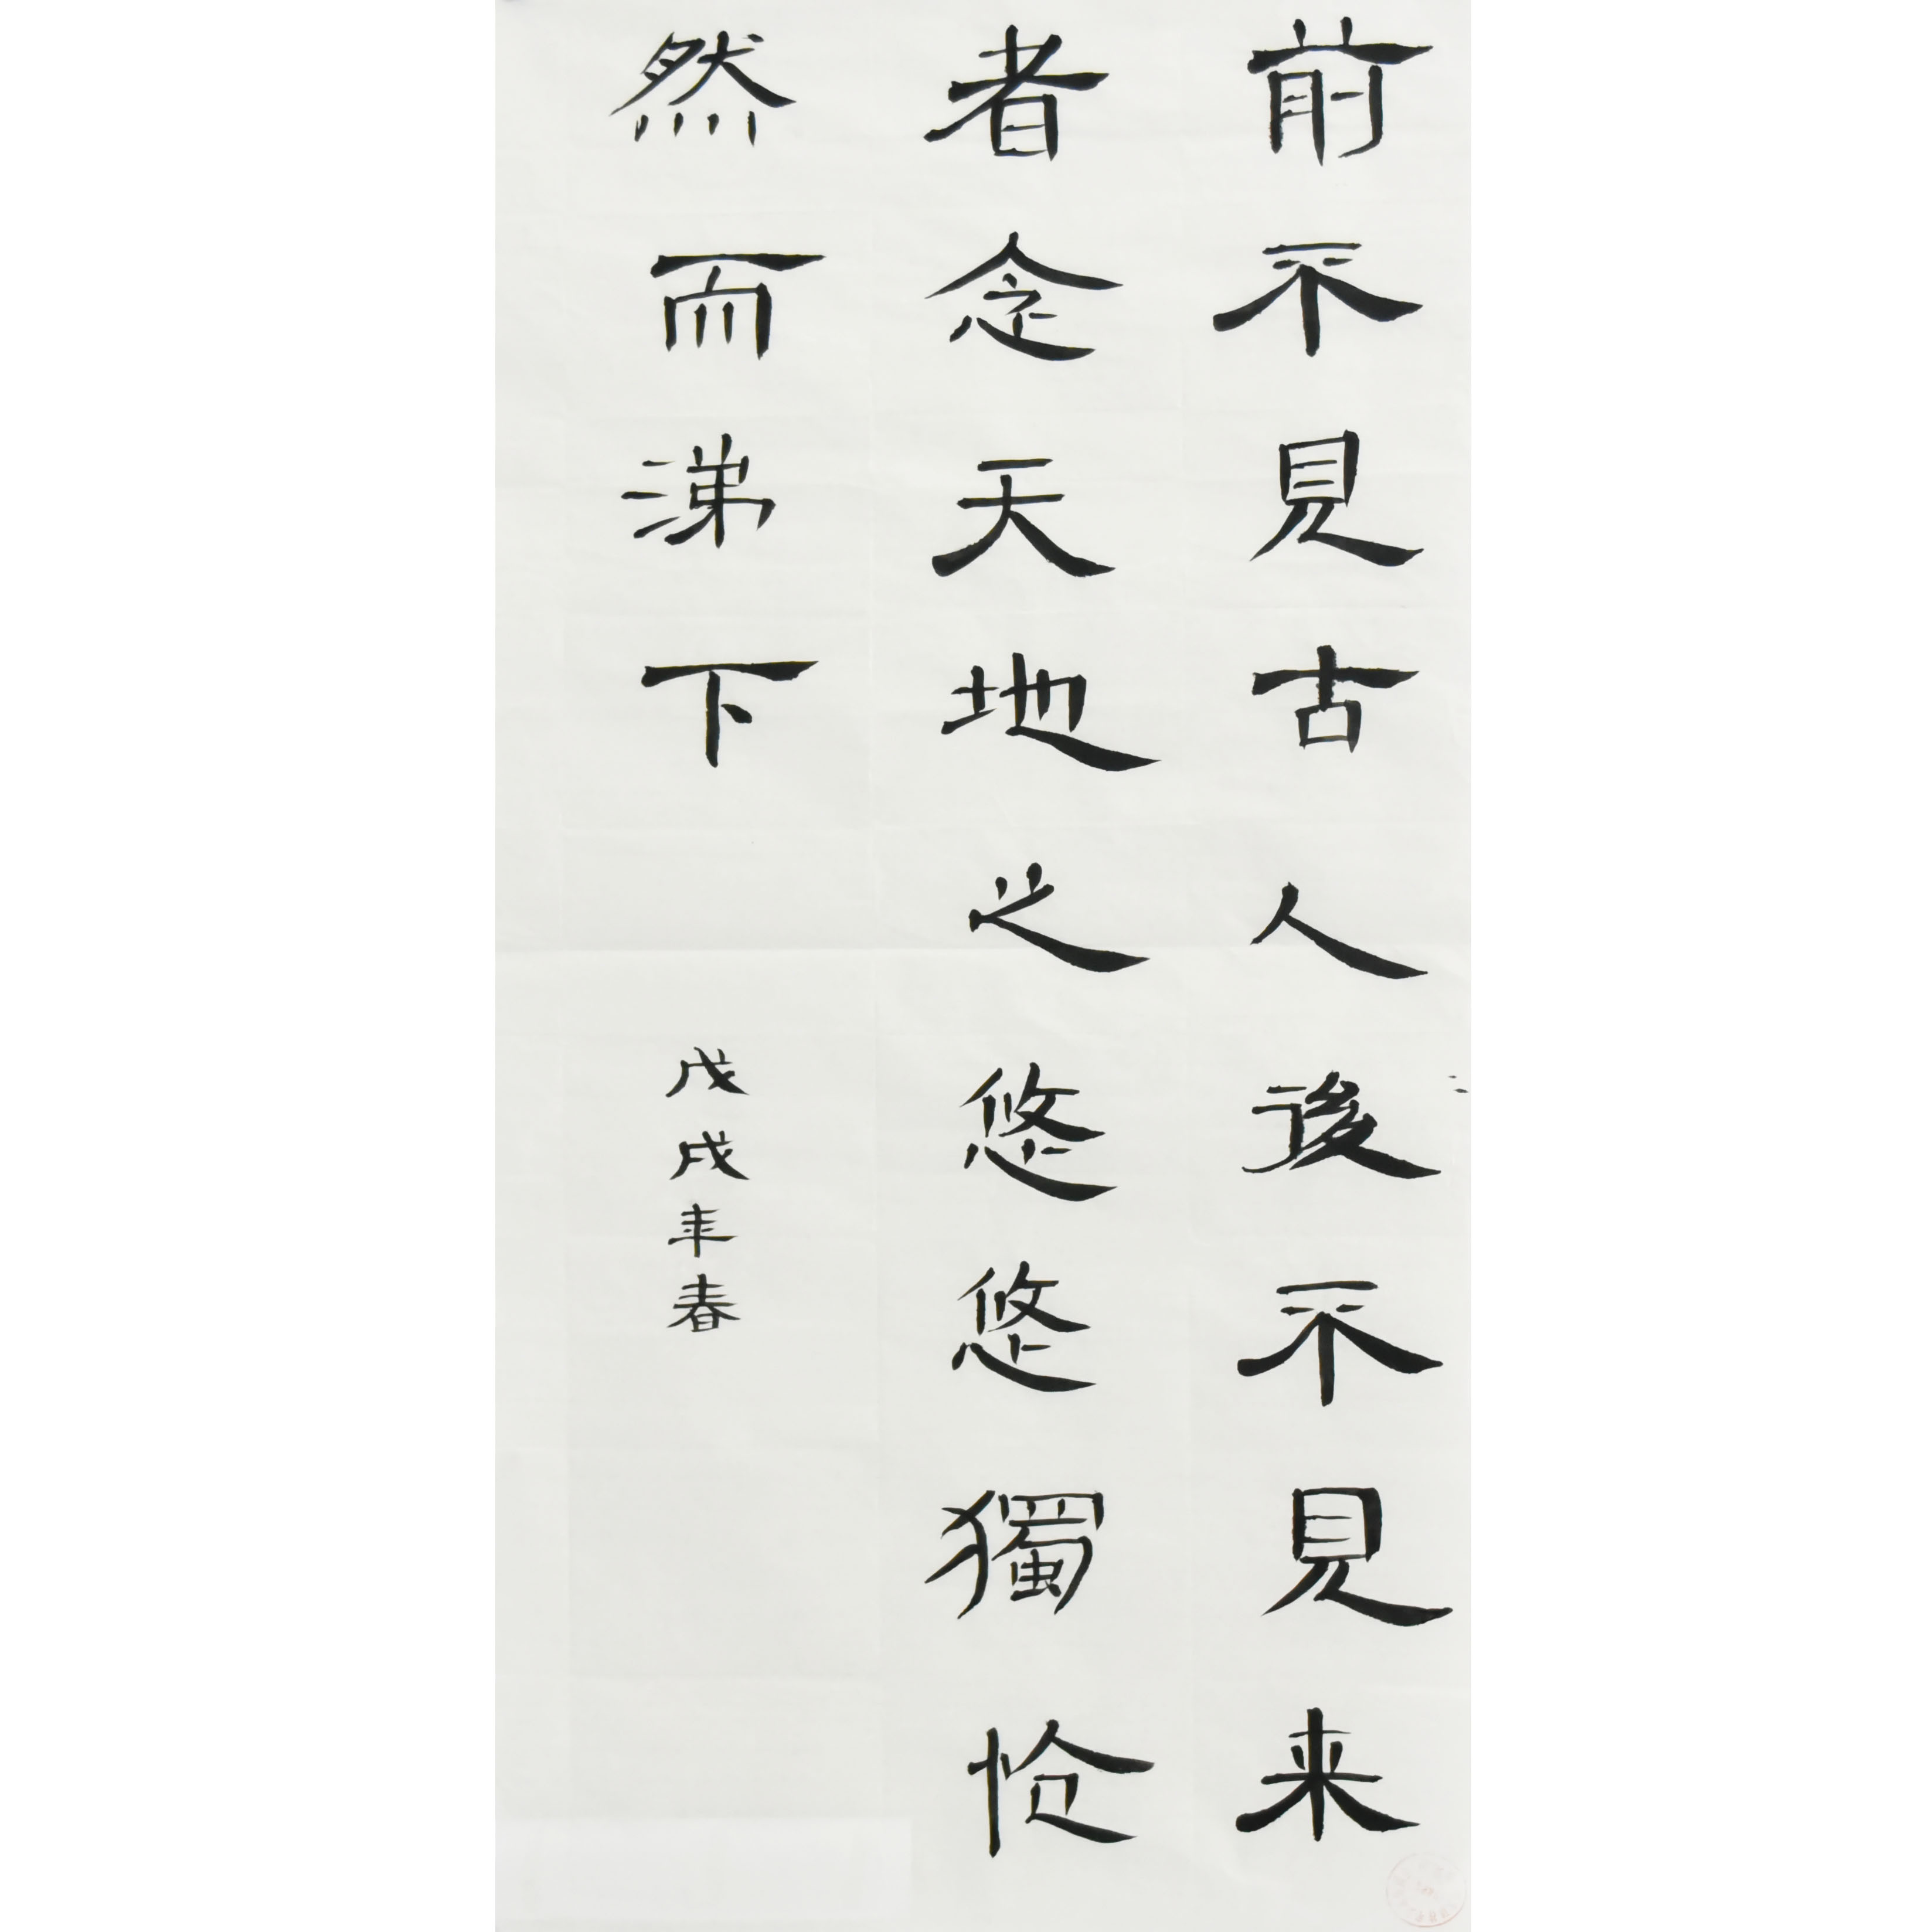 前不見古人後不見来
者念天地之悠悠獨怆
然而涕下
戊戌年春